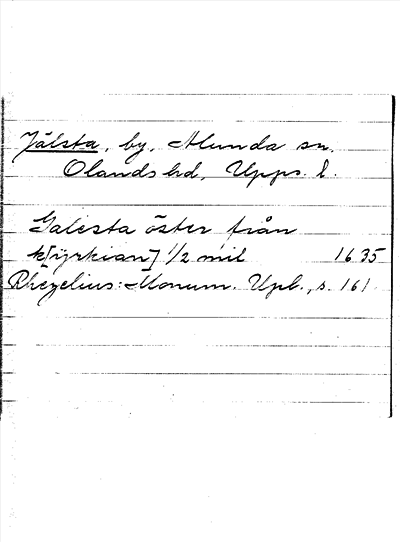 Jälsta, by, Alunda sn.
Olands hd, Upps. l.
Galesta öster från
k[yrkian] 1/2 mil 1635
Rhezelius: Monum. Upl., s. 161